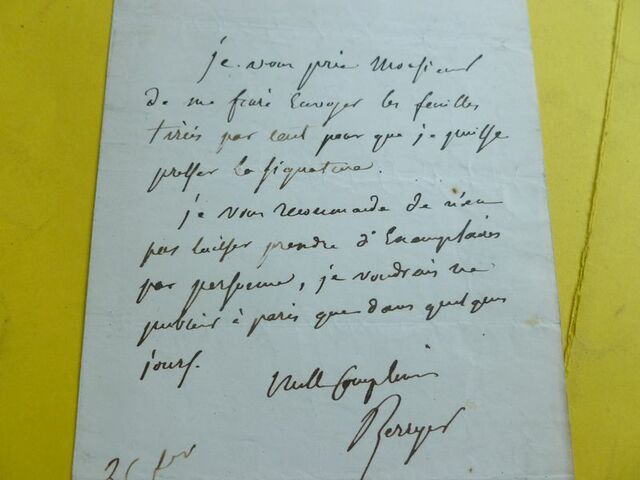 je vous prie Monsieur
de me faire Envoyer les feuilles
tirées par cent pour que je puisse
presser la signature.
je vous recommande de n'en
pas laisser prendre d'Exemplaires
par personne, je voudrais ne
publier à paris que dans quelques
jours.
Mille Complimens
Berryer